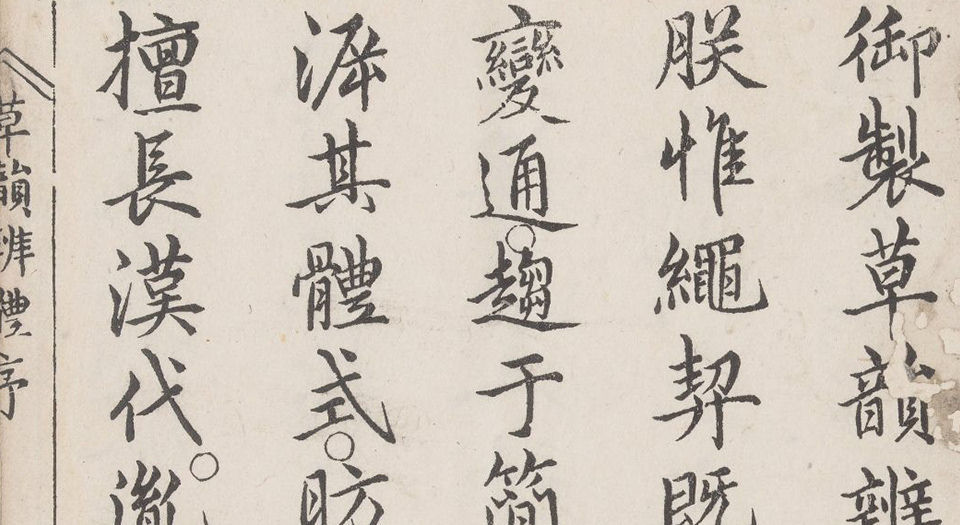 御製草韻辨
朕惟繩契既
變通。趨于簡
溯其體式。昉
擅長漢代。胤
草韻辨體序